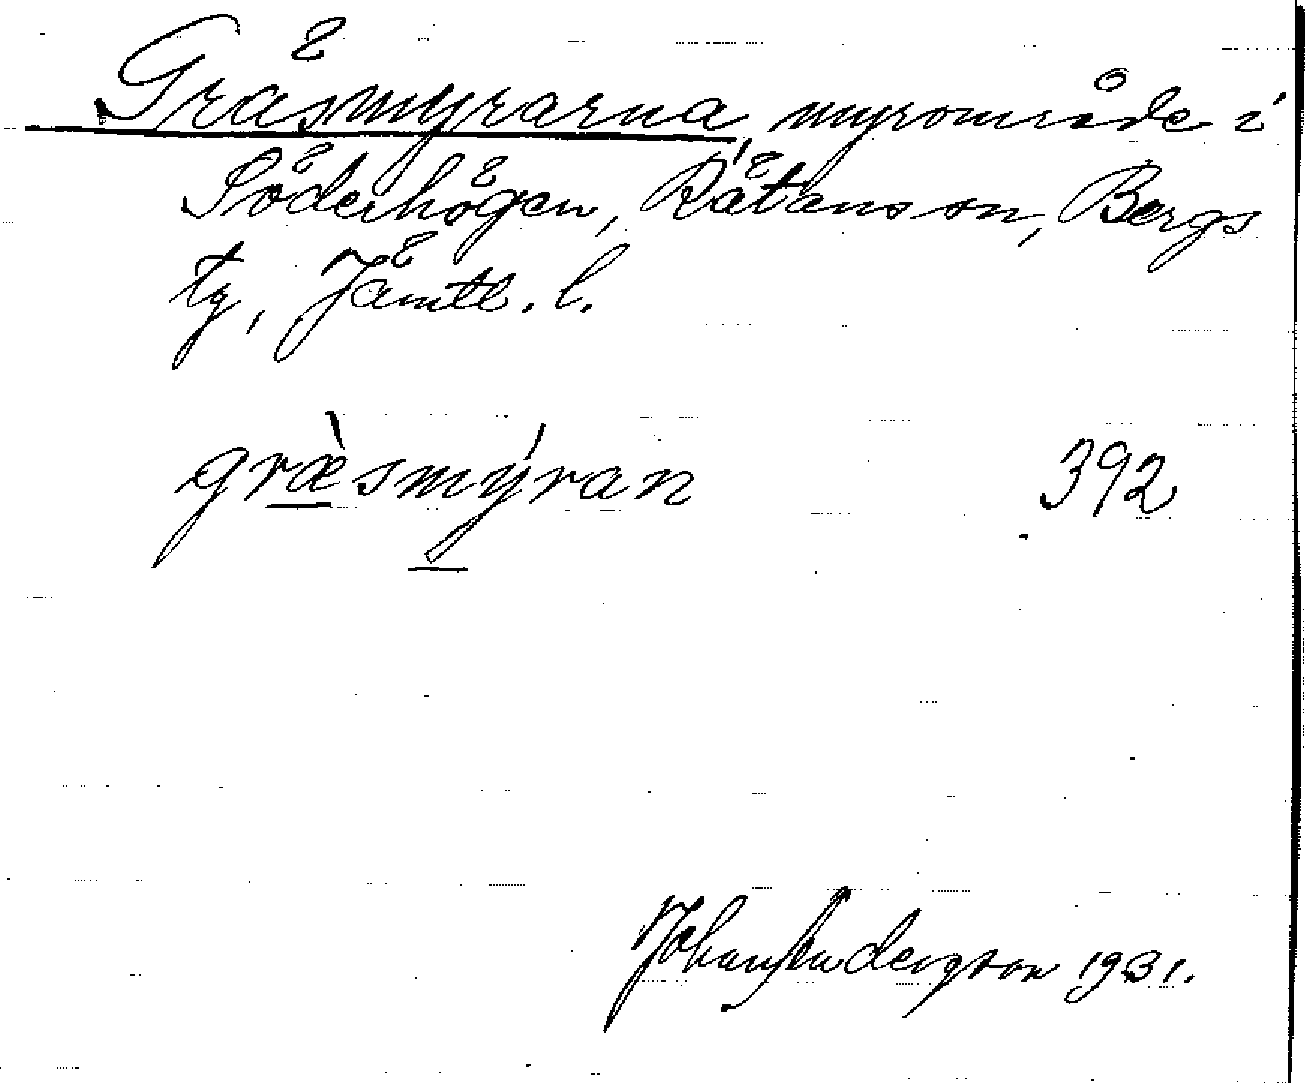 Gräsmyrarna, myrområde i
Söderhögen, Rätans sn, Bergs
tg, Jämtl. l.
græ̀smýran 392
Johan Andersson 1931.